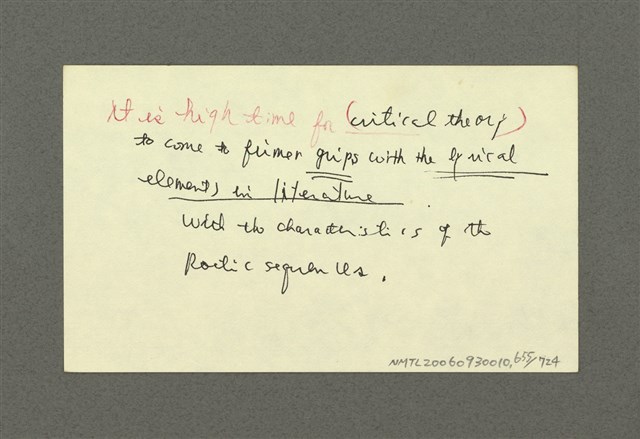 It is high time for (critical theory)
to come to firmer grips with the lyrical
elements in literature.
with the characteristics of the
Poetic sequences.
NMTL20060930010,655/724